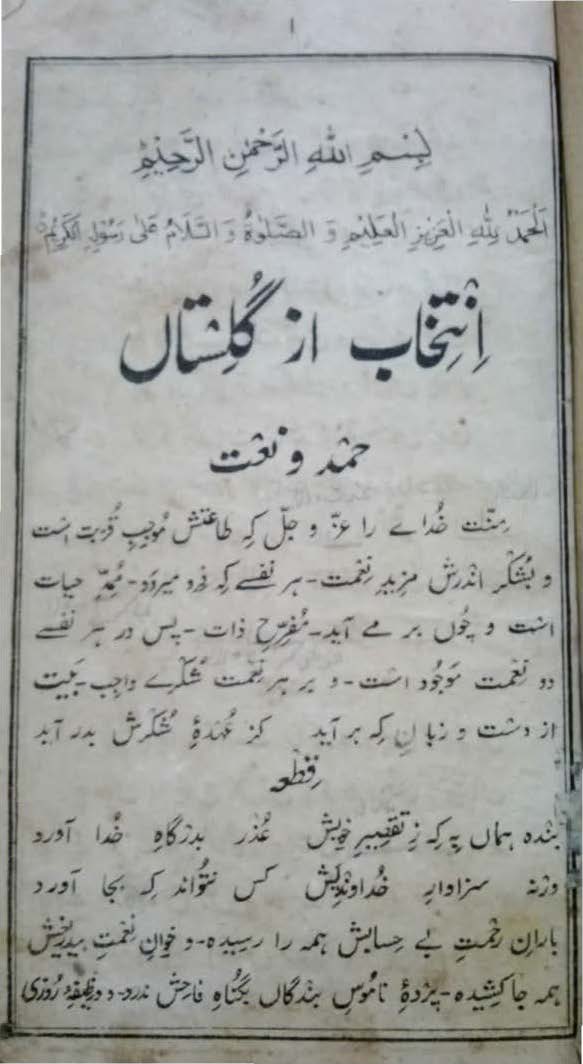 ۱
بِسْمِ اللهِ الرَّحْمٰنِ الرَّحِيْمِ
اَلْحَمْدُ لِلّٰهِ الْعَزِيْزِ الْعَلِيْمِ وَ الصَّلٰوةُ وَ السَّلَامُ عَلٰى رَسُوْلِهِ الْكَرِيْمِ
اِنْتِخاب از گُلِستاں
حمْد و نعْت
مِنّت خُداے را عزّ و جلّ کِہ طاعتش مُوجبِ قُربت است
و بشُکر اندرش مزیدِ نِعْمت۔ ہر نفَسے کِہ فرو میرود۔ مُمِدِّ حیات
است و چُوں بر مے آید۔ مُفرِّحِ ذات۔ پس در ہر نفَسے
دو نِعْمت موجُود است۔ و بر ہر نِعْمت شُکرے واجب۔ بَیت
از دست و زبانِ کِہ بر آید کز عُہدۂ شُکرش بدر آید
قِطعہ
بندہ ہماں بِہ کِہ ز تقصیرِ خویش عُذر بدرگاہِ خُدا آورد
ورنہ سزاوارِ خُداوندیش کس نتواند کِہ بجا آورد
بارانِ رحمتِ بے حِسابش ہمہ را رسیدہ۔ و خوانِ نِعْمتِ بیدریغش
ہمہ جا کشیدہ۔ پردۂ نامُوسِ بندگاں بگُناہِ فاحِش ندرد۔ و وظیفۂ رُوزی